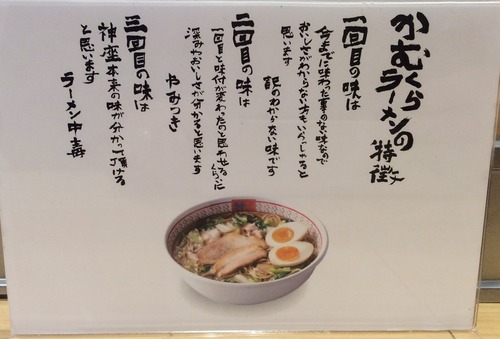 かむくら
ラーメンの
特徴
一回目の味は
今までに味わった事のない味なので
おいしさがわからない方もいらっしゃると
思います
訳のわからない味です
二回目の味は
一回目と味付が変わったのと思わせるくらいに
深みやおいしさが分かると思います
やみつき
三回目の味は
神座本来の味が分かって頂ける
と思います
ラーメン中毒